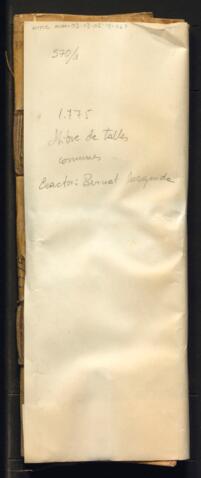 570/1
1.775
Llibre de talles
comunes
Exactor: Bernat